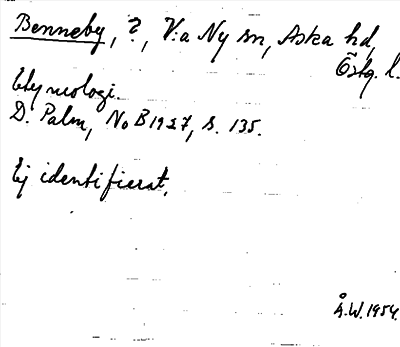 Benneby, ?, V:a Ny sn, Aska hd,
Östg. l.
Etymologi.
D. Palm, NoB 1927, s. 135.
Ej identifierat.
Å.W. 1954.